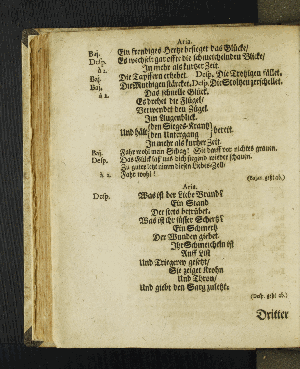 Aria.
Baj. Ein freudiges Hertze besieget das Glücke/
Desp. Es wechselt gar offte die schmeichelnden Blicke/
à 2. In mehr als kurtzer Zeit.
Baj. Die Tapffern erhebet. Desp. Die Trotzigen fället.
Baj. Die Muthigen stärcket. Desp. Die Stoltzen zerschellet.
à 2. Das schnelle Glück.
Es drehet die Flügel/
Verwendet den Zügel.
Im Augenblick.
Und hält den Sieges-Krantz
den Untergang bereit.
In mehr als kurtzer Zeit.
Baj. Fahr wohl mein Schatz! Dir darff vor nichts grauen.
Desp. Das Glück läst uns dich siegend wieder schauen.
Zu guter letzt nimm diesen Liebes-Zoll/
à 2. Fahr wohl!
(Bajaz. geht ab.)
Aria.
Desp. Was ist der Liebe Brand?
Ein Stand
Der stets betrübet.
Was ist ihr süsser Schertz?
Ein Schmertz
Der Wunden giebet.
Ihr Schmeicheln ist
Auff List
Und Triegerey gesetzt/
Sie zeiget Krohn
Und Thron/
Und giebt den Sarg zuletzt.
(Desp. geht ab.)
Dritter